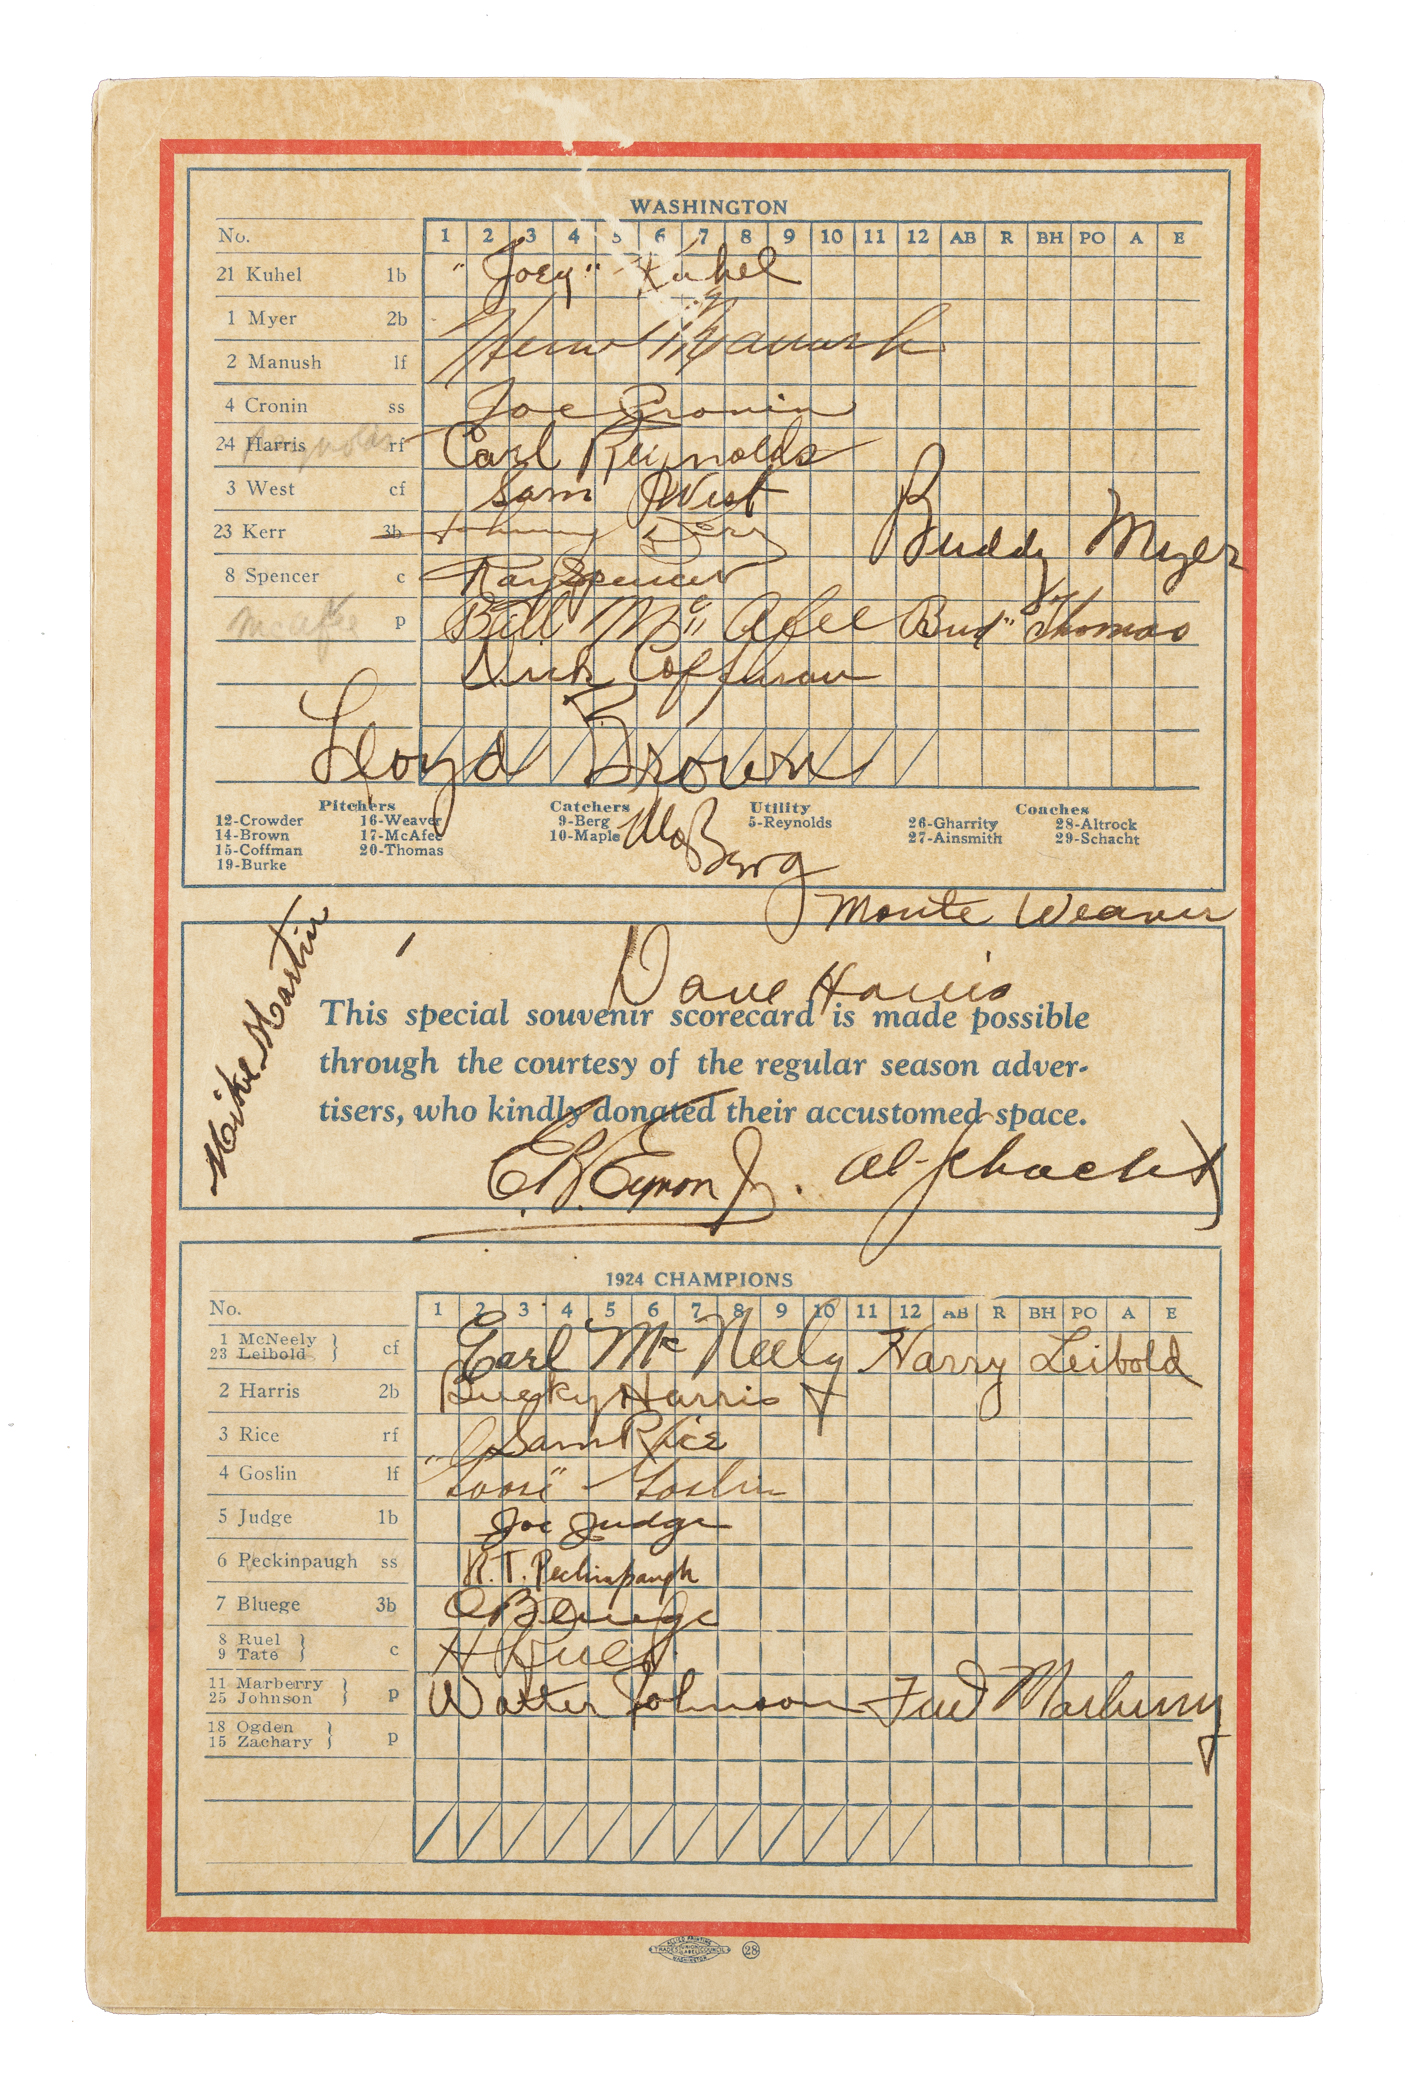 WASHINGTON
No. 1 2 3 4 5 6 7 8 9 10 11 12 AB R BH PO A E
21 Kuhel 1b "Joey" Kuhel
1 Myer 2b
2 Manush lf Heinie Manush
4 Cronin ss Joe Cronin
24 Harris Reynolds rf Carl Reynolds
3 West cf Sam West
23 Kerr 3b Johnny Kerr Buddy Myer
8 Spencer c Ray Spencer
McAfee p Bill McAfee "Bud" Thomas
Dick Coffman
Lloyd Brown
Pitchers Catchers Utility Coaches
12-Crowder 16-Weaver 9-Berg 5-Reynolds 26-Gharrity 28-Altrock
14-Brown 17-McAfee 10-Maple 27-Ainsmith 29-Schacht
15-Coffman 20-Thomas
19-Burke
Moe Berg
Monte Weaver
Mike Martin
Dave Harris
This special souvenir scorecard is made possible
through the courtesy of the regular season adver-
tisers, who kindly donated their accustomed space.
E.B. Eynon Jr. Al Schacht
1924 CHAMPIONS
No. 1 2 3 4 5 6 7 8 9 10 11 12 AB R BH PO A E
1 McNeely } cf Earl McNeely Harry Leibold
23 Leibold
2 Harris 2b Bucky Harris
3 Rice rf Sam Rice
4 Goslin lf "Goose" Goslin
5 Judge 1b Joe Judge
6 Peckinpaugh ss R. T. Peckinpaugh
7 Bluege 3b O Bluege
8 Ruel } c H Ruel
9 Tate
11 Marberry } p Walter Johnson Fred Marberry
25 Johnson
18 Ogden } p
15 Zachary
ALLIED PRINTING
TRADES UNION LABEL COUNCIL
WASHINGTON
28